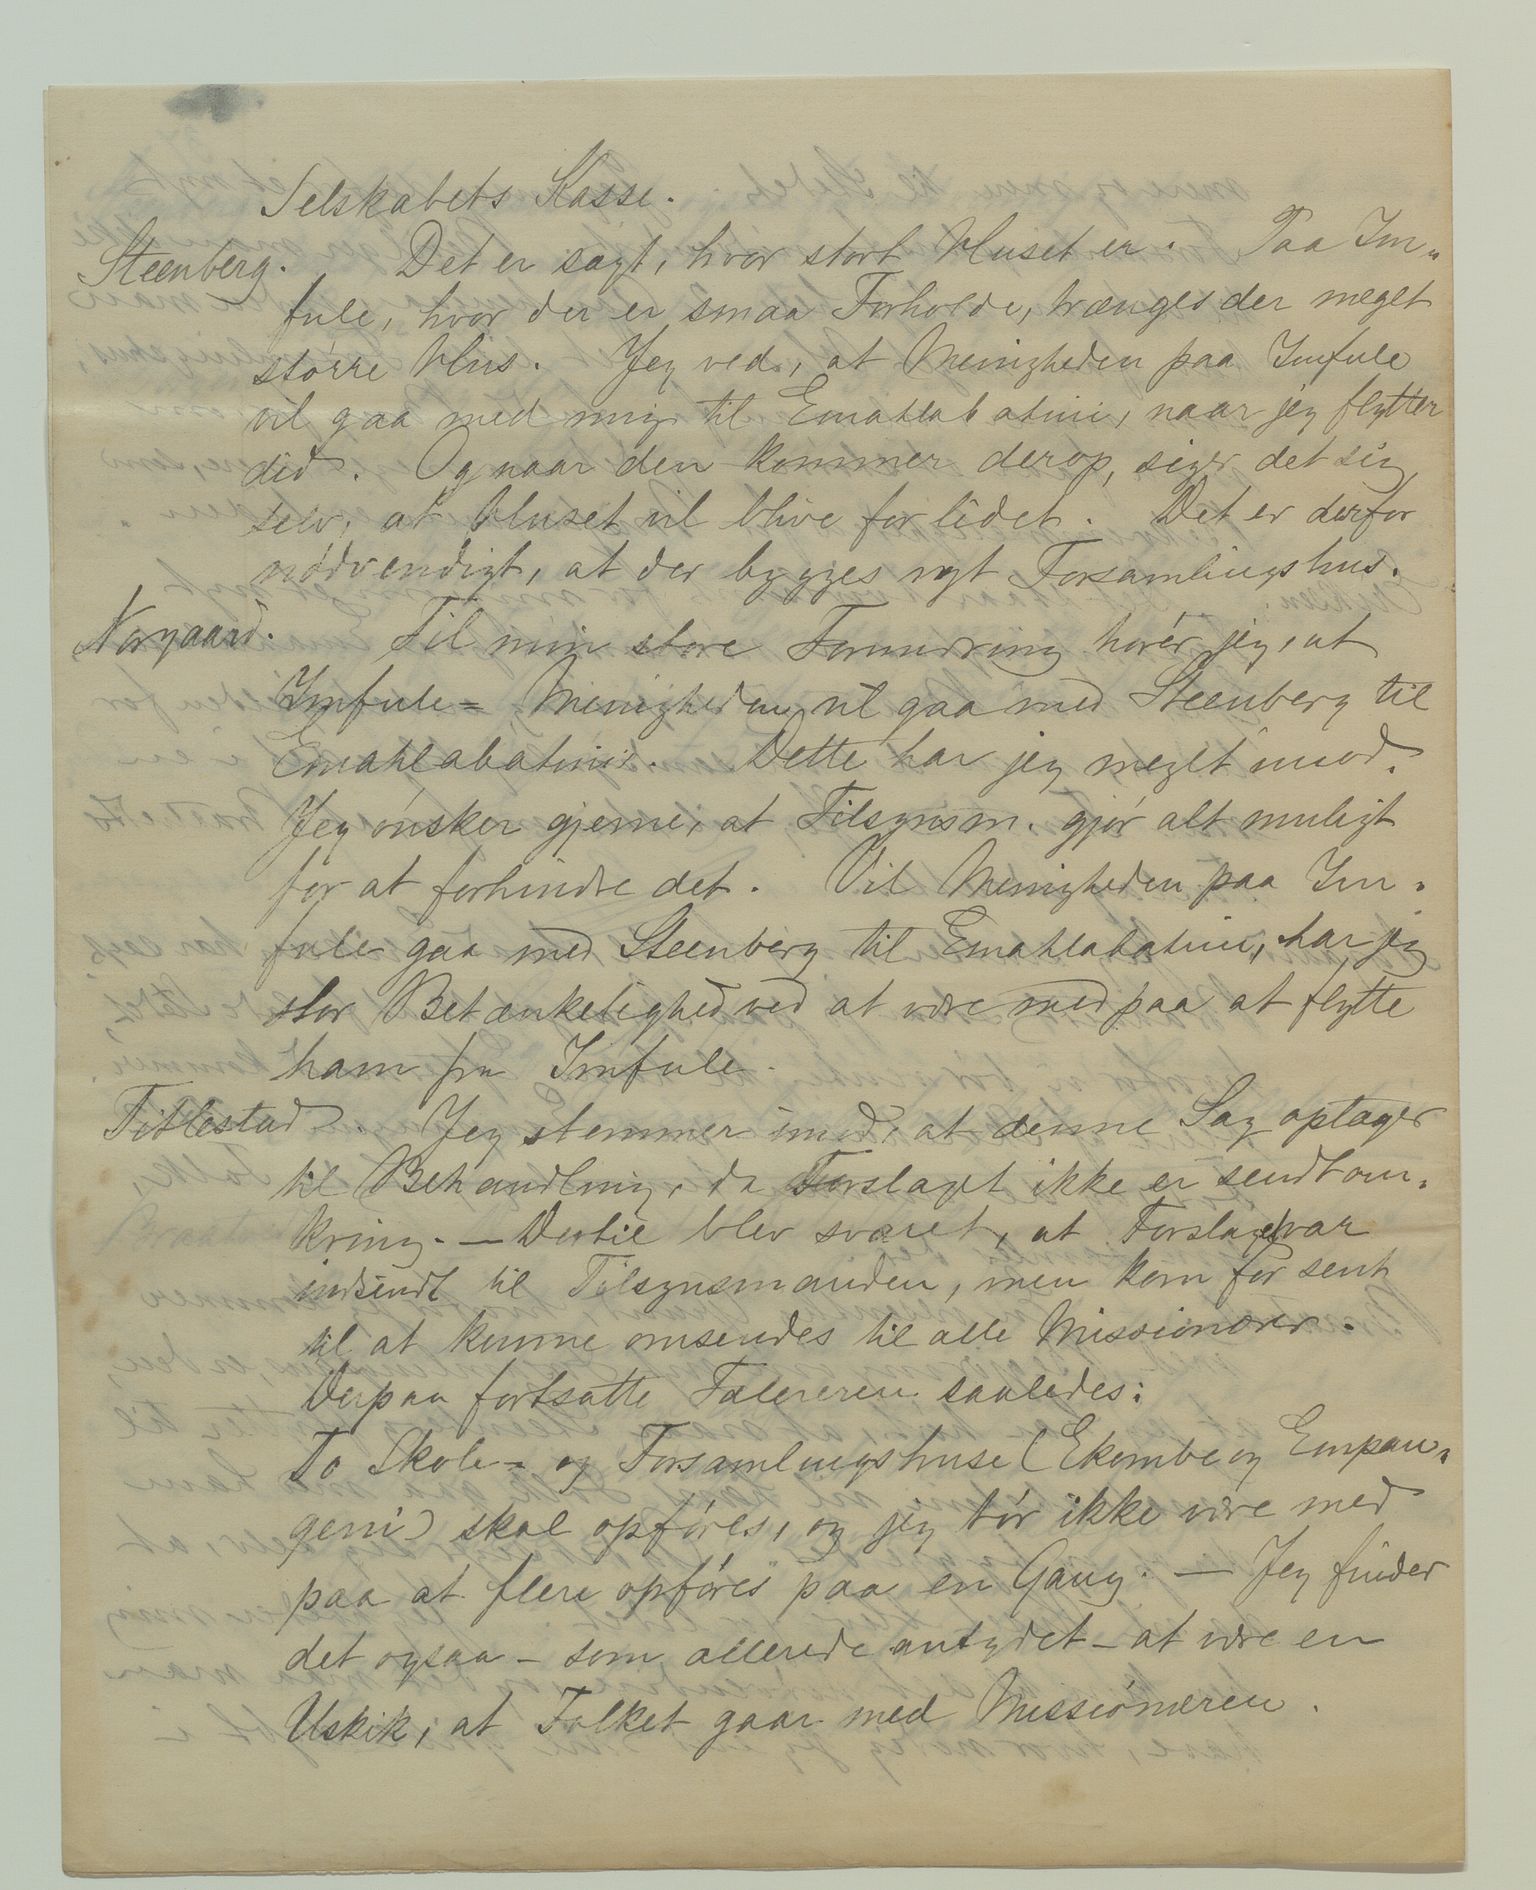 Selskabets Kasse.
Steenberg. Det er sagt, hvor stort Huset er. Paa Im=
fule, hvor der er smaa Forholde, trænges der meget
større Hus. Jeg ved, at Menigheden paa Imfule
vil gaa med mig til Emahlabatini, naar jeg flytter
did. Og naar den kommer derop, siger det sig
selv, at Huset vil blive for lidet. Det er derfor
nødvendigt, at der bygges nyt Forsamlingshus.
Norgaard. Til min store Forundring hører jeg, at
Imfule= Menigheden vil gaa med Steenberg til
Emahlabatini. Dette har jeg meget imod.
Jeg ønsker gjerne, at Tilsynsm. gjør alt muligt
for at forhindre det. Vil Menigheden paa Im=
fule gaa med Steenberg til Emahlabatini, har jeg
stor Betænkelighed ved at være med paa at flytte
ham fra Imfule.
Titlestad. Jeg stemmer imod, at denne Sag optages
til Behandling, da Forslaget ikke er sendt om=
kring. — Dertil blev svaret, at Forslaget var
indsendt til Tilsynsmanden, men kom for sent
til at kunne omsendes til alle Missionærer.
Derpaa fortsatte Taleren saaledes:
To Skole= og Forsamlingshuse (Ekombe og Empan=
geni) skal opføres, og jeg tør ikke være med
paa at flere opføres paa en Gang. — Jeg finder
det ogsaa — som allerede antydet — at være en
Uskik, at Folket gaar med Missionæren.